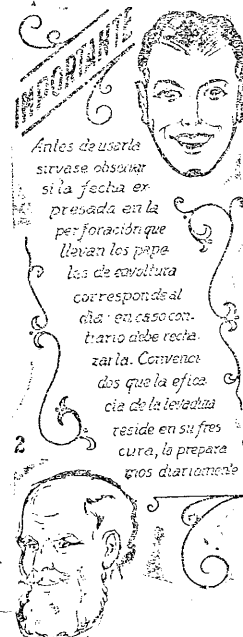 IMPORTANTE
Antes de usarla
sirvase observar
si la fecha ex
presada en la
perforación que
llevan los pape
les de envoltura
corresponde al
dia: en caso con-
trario debe recha-
zarla. Convenci
dos que la efica
cia de la levadura
reside en su fres
cura, la prepara
mos diariamente
2